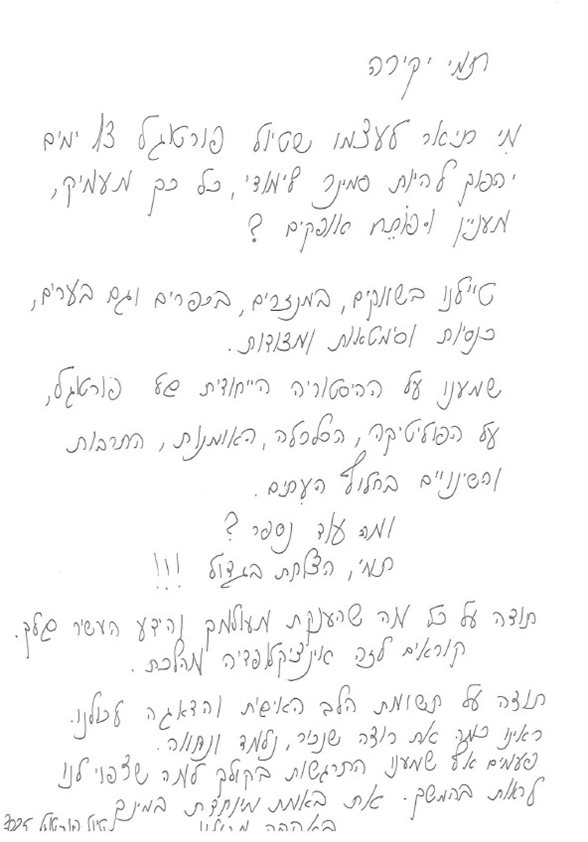 תמי יקירה
מי תיאר לעצמו שטיול פורטוגל 13 ימים
יהפוך להיות סמינר לימודי, כל כך מעמיק,
מעניין ופותח אופקים ?
טיילנו בשווקים, במנזרים, בכפרים וגם בערים,
כנסיות וסימטאות ומצודות.
שמענו על ההיסטוריה הייחודית של פורטוגל,
על הפוליטיקה, הכלכלה, האומנות, התרבות
והשינויים בחלוף העתים.
ומה עוד נספר ?
תמי, הצלחת בגדול !!!
תודה על כל מה שהענקת מעולמך והידע העשיר שלך.
קוראים לזה אינציקלופדיה מהלכת.
תודה על תשומת הלב האישית והדאגה לכולנו.
ראינו כמה את רוצה שנכיר, נלמד ונחווה.
פעמים אף שמענו התרגשות בקולך למה שצפוי לנו
לראות בהמשך. את באמת מיוחדת במינך
באהבה
טיול פורטוגל 2025